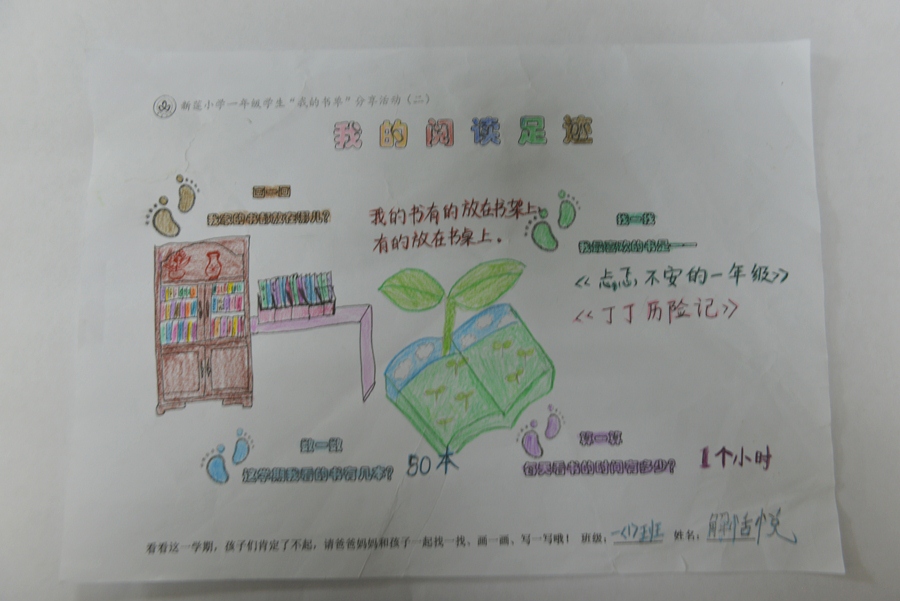 新莲小学一年级学生“我的书单”分享活动（二）
我的阅读足迹
画一画
我家的书都放在哪儿？
我的书有的放在书架上，
有的放在书桌上。
找一找
我最喜欢的书是——
《忐忑不安的一年级》
《丁丁历险记》
数一数
这学期我看的书有几本？
50本
算一算
每天看书的时间有多少？
1个小时
看看这一学期，孩子们肯定了不起，请爸爸妈妈和孩子一起找一找、画一画、写一写哦！ 班级：一(1)班 姓名：解恬悦